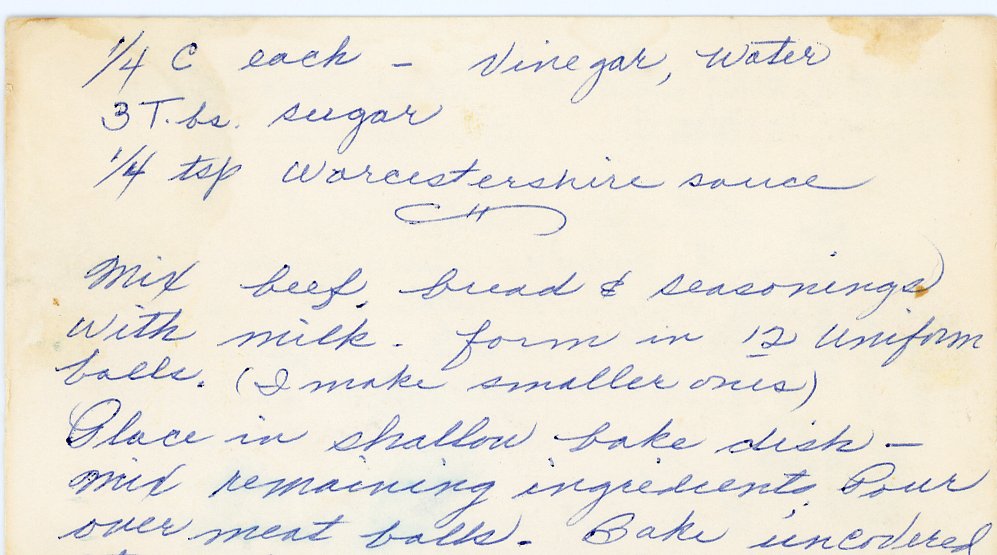 1/4 C each - Vinegar, Water
3 T.bs. sugar
1/4 tsp Worcestershire sauce
Mix beef, bread & seasonings
with milk. form in 12 Uniform
balls. (I make smaller ones)
Place in shallow bake dish -
mix remaining ingredients Pour
over meat balls. Bake uncovered